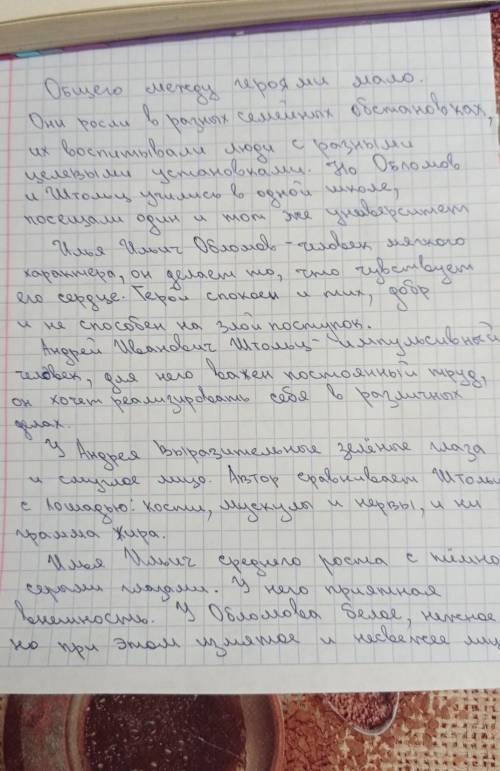 Общего между героями мало.
Они росли в разных семейных обстановках,
их воспитывали люди с разными
целевыми установками. Но Обломов
и Штольц учились в одной школе,
посещали один и тот же университет
Илья Ильич Обломов - человек мягкого
характера, он делает то, что чувствует
его сердце. Герой спокоен и тих, добр
и не способен на злой поступок.
Андрей Иванович Штольц - импульсивный
человек, для него важен постоянный труд,
он хочет реализировать себя в различных
делах.
У Андрея выразительные зелёные глаза
и смуглое лицо. Автор сравнивает Штольц
с лошадью: кости, мускулы и нервы, и ни
грамма жира.
Илья Ильич среднего роста с тёмно
серыми глазами. У него приятная
внешность. У Обломова белое, нежное
но при этом измятое и несвежее лиц